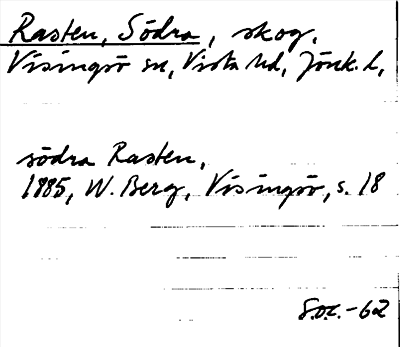 Rasten, Södra, skog.
Visingsö sn, Vista hd, Jönk. l.
södra Rasten,
1885, W. Berg, Visingsö, s. 18
S.O.L. -62